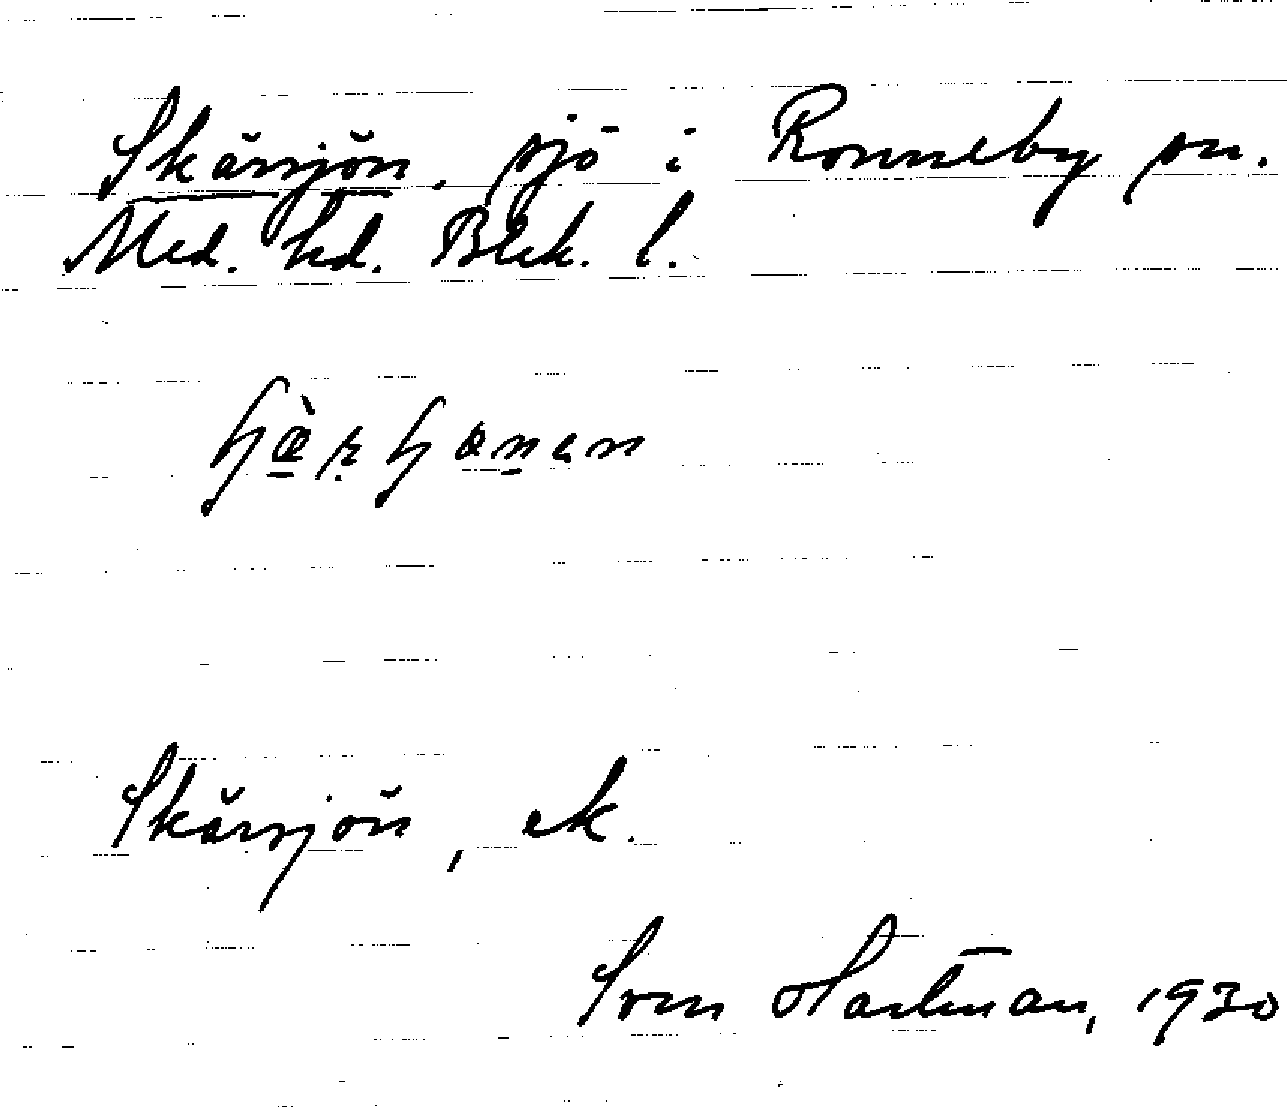 Skärsjön, sjö i Ronneby sn.
Med. hd. Blek. l.
Skärsjön, ek.
Sven Hartman, 1930